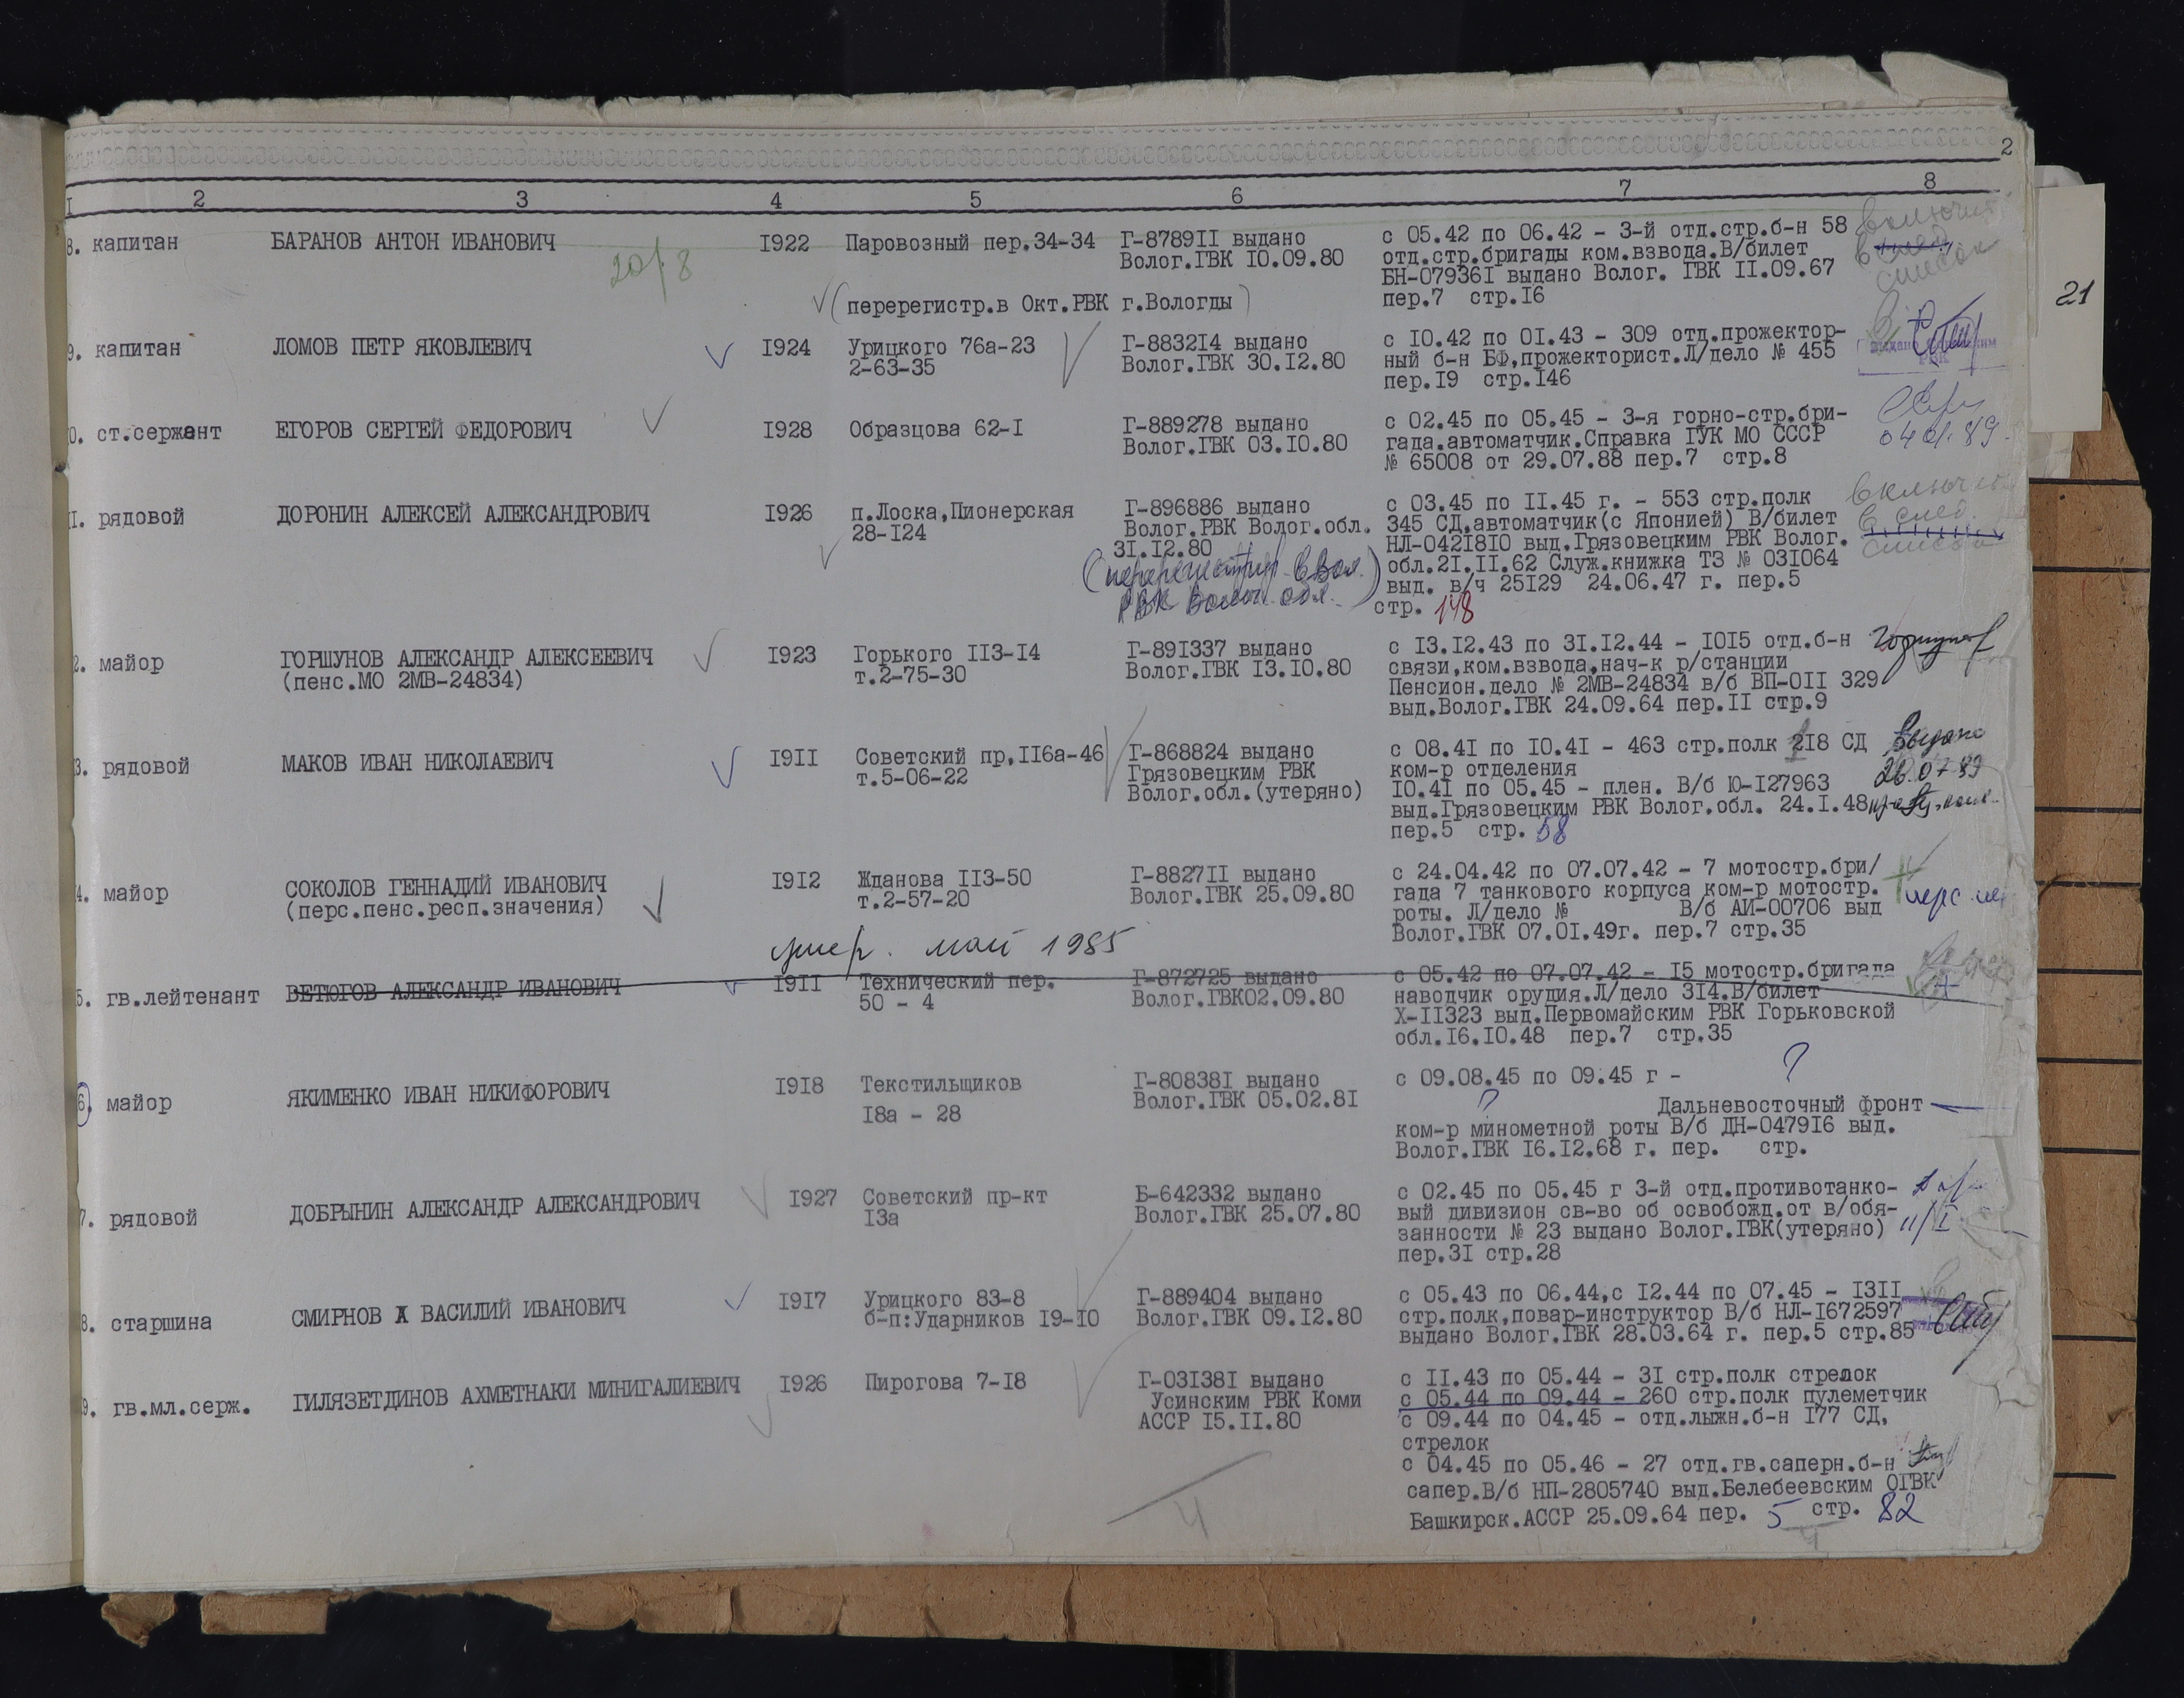 2
21
I 2 3 4 5 6 7 8
8. капитан БАРАНОВ АНТОН ИВАНОВИЧ I922 Паровозный пер.34-34 Г-8789II выдано с 05.42 по 06.42 - 3-й отд.стр.б-н 58 включить
Волог.ГВК I0.09.80 отд.стр.бригады ком.взвода.В/билет в след.
20/8 БН-07936I выдано Волог. ГВК II.09.67 список
(перерегистр.в Окт.РВК г.Вологды) пер.7 стр.I6
9. капитан ЛОМОВ ПЕТР ЯКОВЛЕВИЧ I924 Урицкого 76а-23 Г-8832I4 выдано с I0.42 по 0I.43 - 309 отд.прожектор-
2-63-35 Волог.ГВК 30.I2.80 ный б-н БФ,прожекторист.Л/дело № 455
пер.I9 стр.I46 РВК
0. ст.сержант ЕГОРОВ СЕРГЕЙ ФЕДОРОВИЧ I928 Образцова 62-I Г-889278 выдано с 02.45 по 05.45 - 3-я горно-стр.бри-
Волог.ГВК 03.I0.80 гада.автоматчик.Справка ГУК МО СССР 04.01.89.
№ 65008 от 29.07.88 пер.7 стр.8
I. рядовой ДОРОНИН АЛЕКСЕЙ АЛЕКСАНДРОВИЧ I926 п.Лоска,Пионерская Г-896886 выдано с 03.45 по II.45 г. - 553 стр.полк включить
28-I24 Волог.РВК Волог.обл. 345 СД,автоматчик(с Японией) В/билет в след.
3I.I2.80 НЛ-042I8I0 выд.Грязовецким РВК Волог. список
(перерегистрир. в Вол. обл.2I.II.62 Служ.книжка ТЗ № 03I064
РВК Волог. обл.) выд. в/ч 25I29 24.06.47 г. пер.5
стр. 148
2. майор ГОРШУНОВ АЛЕКСАНДР АЛЕКСЕЕВИЧ I923 Горького II3-I4 Г-89I337 выдано с I3.I2.43 по 3I.I2.44 - I0I5 отд.б-н Горшунов
(пенс.МО 2МВ-24834) т.2-75-30 Волог.ГВК I3.I0.80 связи,ком.взвода,нач-к р/станции
Пенсион.дело № 2МВ-24834 в/б ВП-0II 329
выд.Волог.ГВК 24.09.64 пер.II стр.9
3. рядовой МАКОВ ИВАН НИКОЛАЕВИЧ I9II Советский пр,II6а-46 Г-868824 выдано с 08.4I по I0.4I - 463 стр.полк 2I8 СД Выдано
т.5-06-22 Грязовецким РВК ком-р отделения 26.07.89
Волог.обл.(утеряно) I0.4I по 05.45 - плен. В/б Ю-I27963
выд.Грязовецким РВК Волог.обл. 24.I.48
пер.5 стр. 58
4. майор СОКОЛОВ ГЕННАДИЙ ИВАНОВИЧ I9I2 Жданова II3-50 Г-8827II выдано с 24.04.42 по 07.07.42 - 7 мотостр.бри/
(перс.пенс.респ.значения) т.2-57-20 Волог.ГВК 25.09.80 гада 7 танкового корпуса ком-р мотостр.
роты. Л/дело № В/б АИ-00706 выд
Волог.ГВК 07.0I.49г. пер.7 стр.35
умер. май 1985
5. гв.лейтенант ВЕТЮГОВ АЛЕКСАНДР ИВАНОВИЧ I9II Технический пер. Г-872725 выдано с 05.42 по 07.07.42 - I5 мотостр.бригада
50 - 4 Волог.ГВК02.09.80 наводчик орудия.Л/дело 3I4.В/билет
Х-II323 выд.Первомайским РВК Горьковской
обл.I6.I0.48 пер.7 стр.35
6. майор ЯКИМЕНКО ИВАН НИКИФОРОВИЧ I9I8 Текстильщиков Г-80838I выдано с 09.08.45 по 09.45 г - ?
I8а - 28 Волог.ГВК 05.02.8I ? Дальневосточный фронт
ком-р минометной роты В/б ДН-0479I6 выд.
Волог.ГВК I6.I2.68 г. пер. стр.
7. рядовой ДОБРЫНИН АЛЕКСАНДР АЛЕКСАНДРОВИЧ I927 Советский пр-кт Б-642332 выдано с 02.45 по 05.45 г 3-й отд.противотанко-
I3а Волог.ГВК 25.07.80 вый дивизион св-во об освобожд.от в/обя-
занности № 23 выдано Волог.ГВК(утеряно) 11/I
пер.3I стр.28
8. старшина СМИРНОВ Х ВАСИЛИЙ ИВАНОВИЧ I9I7 Урицкого 83-8 Г-889404 выдано с 05.43 по 06.44,с I2.44 по 07.45 - I3II
б-п:Ударников I9-I0 Волог.ГВК 09.I2.80 стр.полк,повар-инструктор В/б НЛ-I672597
выдано Волог.ГВК 28.03.64 г. пер.5 стр.85
9. гв.мл.серж. ГИЛЯЗЕТДИНОВ АХМЕТНАКИ МИНИГАЛИЕВИЧ I926 Пирогова 7-I8 Г-03I38I выдано с II.43 по 05.44 - 3I стр.полк стрелок
Усинским РВК Коми с 05.44 по 09.44 - 260 стр.полк пулеметчик
АССР I5.II.80 с 09.44 по 04.45 - отд.лыжн.б-н I77 СД,
стрелок
с 04.45 по 05.46 - 27 отд.гв.саперн.б-н
сапер.В/б НП-2805740 выд.Белебеевским ОГВК
Башкирск.АССР 25.09.64 пер. 5 стр. 82
4